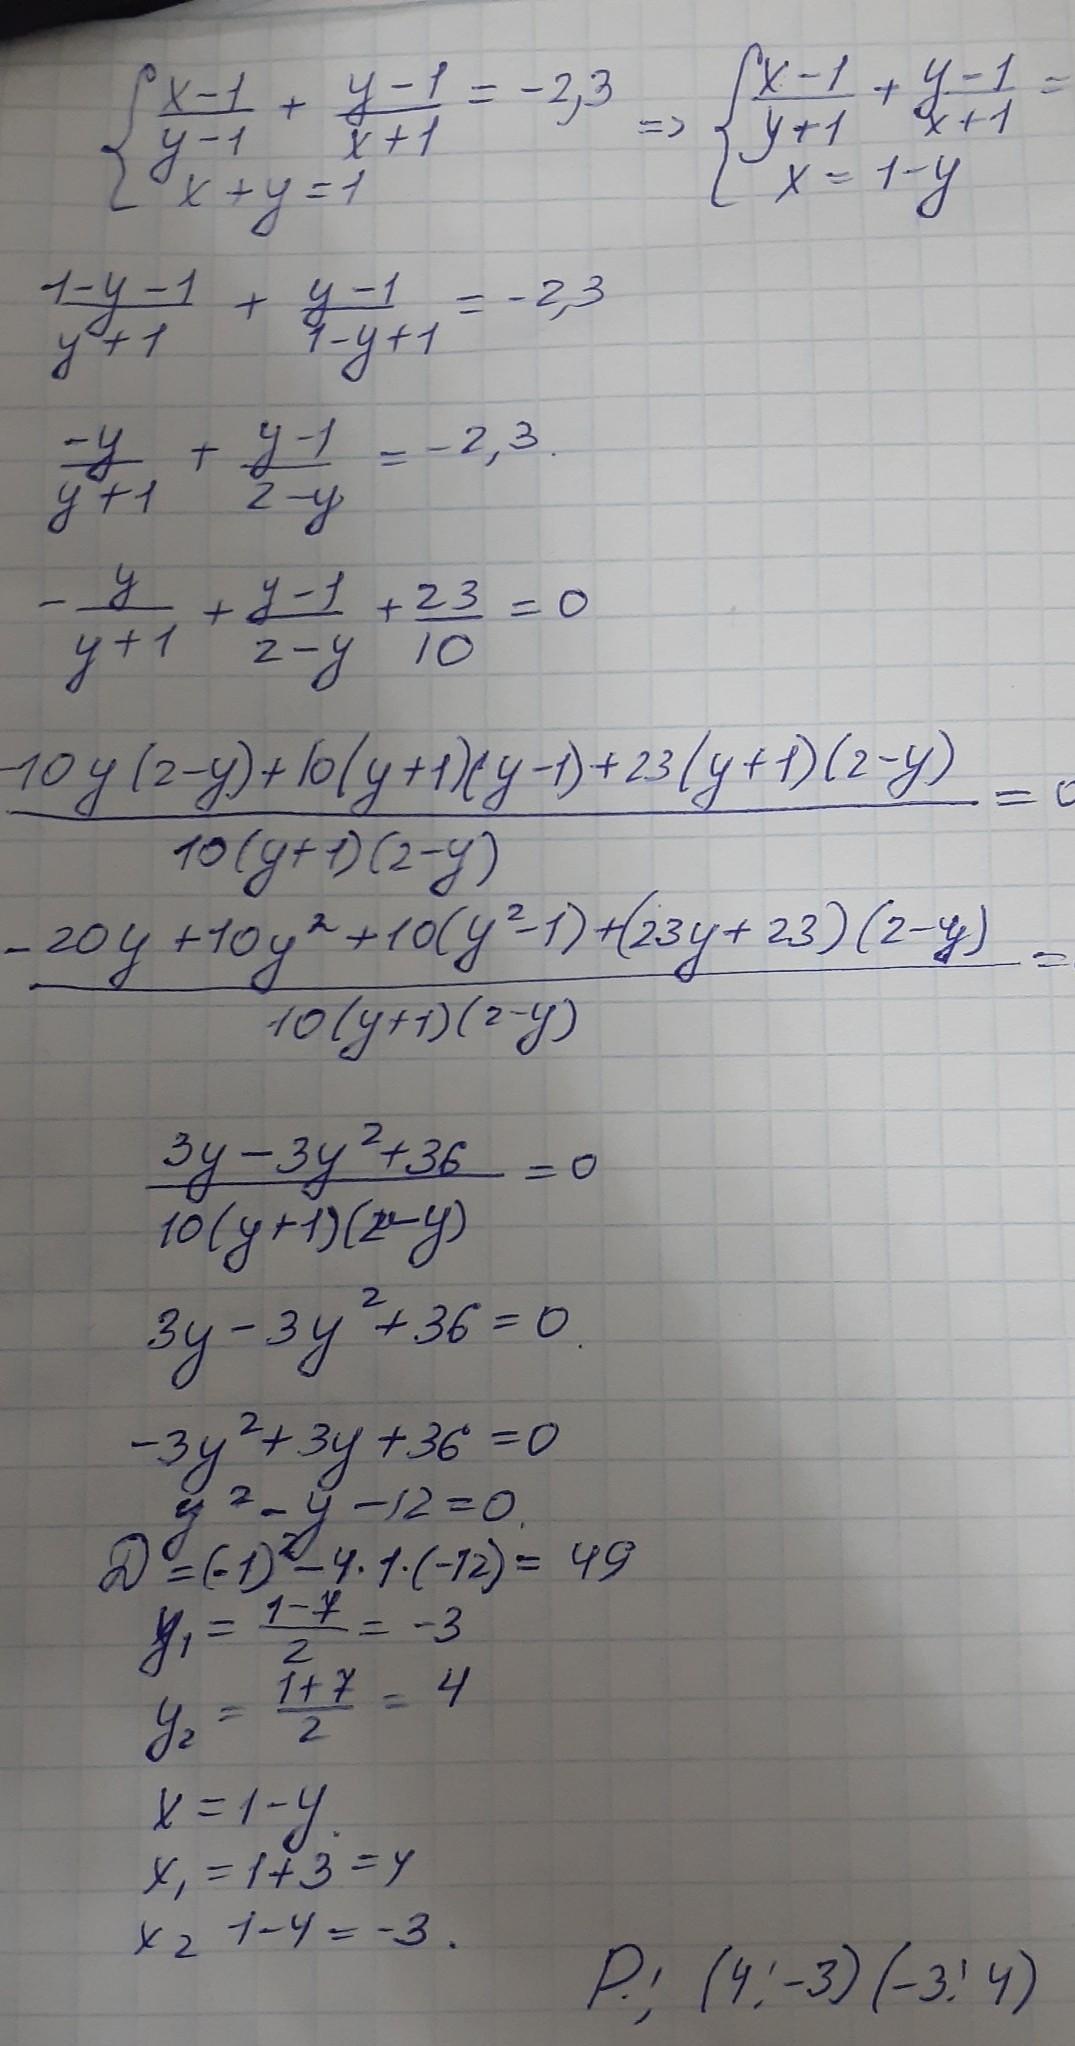 { (x-1)/(y-1) + (y-1)/(x+1) = -2,3 => { (x-1)/(y+1) + (y-1)/(x+1) =
x+y=1 x = 1-y
(1-y-1)/(y+1) + (y-1)/(1-y+1) = -2,3
(-y)/(y+1) + (y-1)/(2-y) = -2,3.
- y/(y+1) + (y-1)/(2-y) + 23/10 = 0
(-10y(2-y)+10(y+1)(y-1)+23(y+1)(2-y))/(10(y+1)(2-y)) = 0
(-20y+10y²+10(y²-1)+(23y+23)(2-y))/(10(y+1)(2-y)) =
(3y-3y²+36)/(10(y+1)(2-y)) = 0
3y-3y²+36=0.
-3y²+3y+36=0
y²-y-12=0.
D=(-1)²-4·1·(-12)=49
y₁ = (1-7)/2 = -3
y₂ = (1+7)/2 = 4
x=1-y.
x₁=1+3=4
x₂ 1-4=-3.
P.; (4;-3)(-3;4)